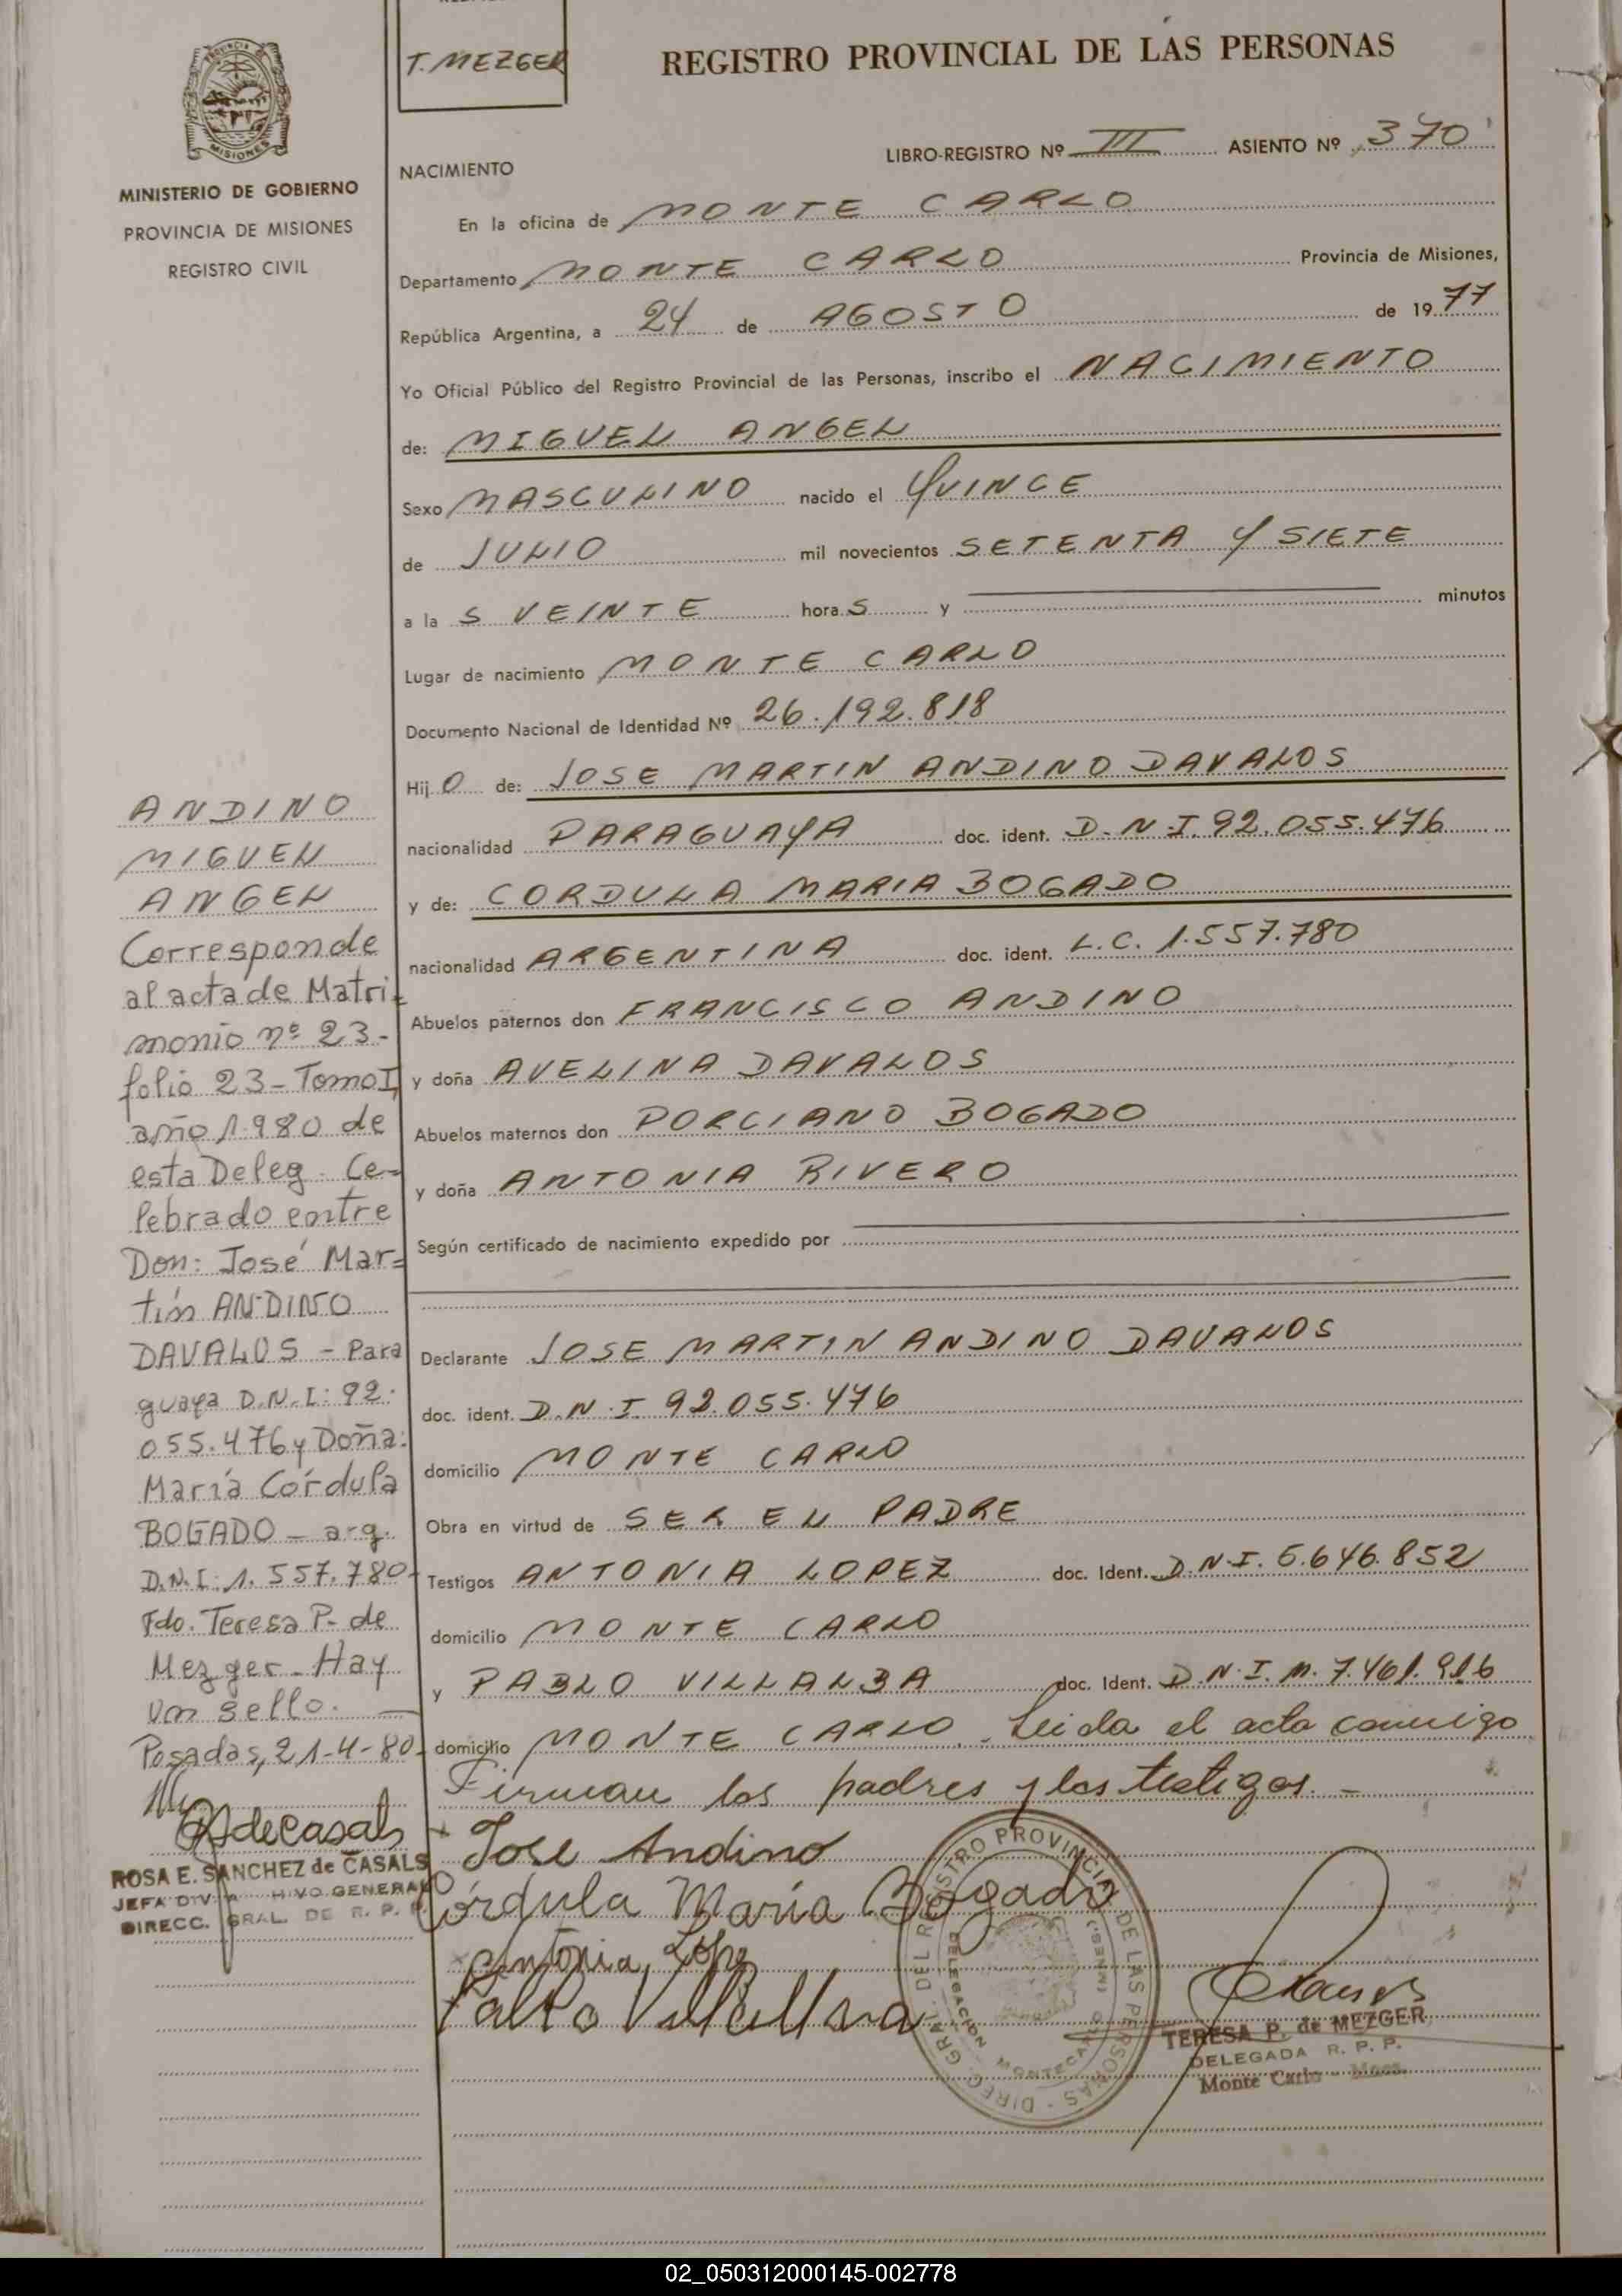 T. MEZGER
REGISTRO PROVINCIAL DE LAS PERSONAS
PROVINCIA DE
MISIONES
MINISTERIO DE GOBIERNO
PROVINCIA DE MISIONES
REGISTRO CIVIL
LIBRO-REGISTRO Nº III ASIENTO Nº 370
NACIMIENTO
En la oficina de MONTE CARLO
Departamento MONTE CARLO Provincia de Misiones,
República Argentina, a 24 de AGOSTO de 1977
Yo Oficial Público del Registro Provincial de las Personas, inscribo el NACIMIENTO
de: MIGUEL ANGEL
Sexo MASCULINO nacido el QUINCE
de JULIO mil novecientos SETENTA Y SIETE
a la S VEINTE hora S y minutos
Lugar de nacimiento MONTE CARLO
Documento Nacional de Identidad Nº 26.192.818
Hij O de: JOSE MARTIN ANDINO DAVALOS
nacionalidad PARAGUAYA doc. ident. D.N.I. 92.055.476
y de: CORDULA MARIA BOGADO
nacionalidad ARGENTINA doc. ident. L.C. 1.557.780
Abuelos paternos don FRANCISCO ANDINO
y doña AVELINA DAVALOS
Abuelos maternos don PORCIANO BOGADO
y doña ANTONIA RIVERO
Según certificado de nacimiento expedido por
Declarante JOSE MARTIN ANDINO DAVALOS
doc. ident. D.N.I. 92.055.476
domicilio MONTE CARLO
Obra en virtud de SER EL PADRE
Testigos ANTONIA LOPEZ doc. Ident. D.N.I. 6.646.852
domicilio MONTE CARLO
y PABLO VILLALBA doc. Ident. D.N.I.M. 7.461.916
domicilio MONTE CARLO. Leida el acta conmigo
Firman los padres y los testigos. -
Jose Andino
Córdula Maria Bogado
Antonia Lopez
Pablo Villalba
ANDINO
MIGUEL
ANGEL
Corresponde
al acta de Matri-
monio nº 23-
folio 23 - Tomo I
año 1.980 de
esta Deleg. Ce-
lebrado entre
Don: José Mar=
tín ANDINO
DAVALOS - Para
guaya D.N.I: 92.
055.476 y Doña:
María Córdula
BOGADO - arg.
D.N.I: 1.557.780-
Fdo. Teresa P. de
Mezger - Hay
un sello.
Posadas, 21-4-80-
ROSA E. SANCHEZ de CASALS
JEFA DIV. ARCHIVO GENERAL
DIRECC. GRAL. DE R. P. P.
DIREC. GRAL. DEL REGISTRO PROVINCIAL DE LAS PERSONAS
DELEGACION MONTECARLO (MISNES.)
TERESA P. de MEZGER
DELEGADA R. P. P.
Monte Carlo - Mnes.
02_050312000145-002778